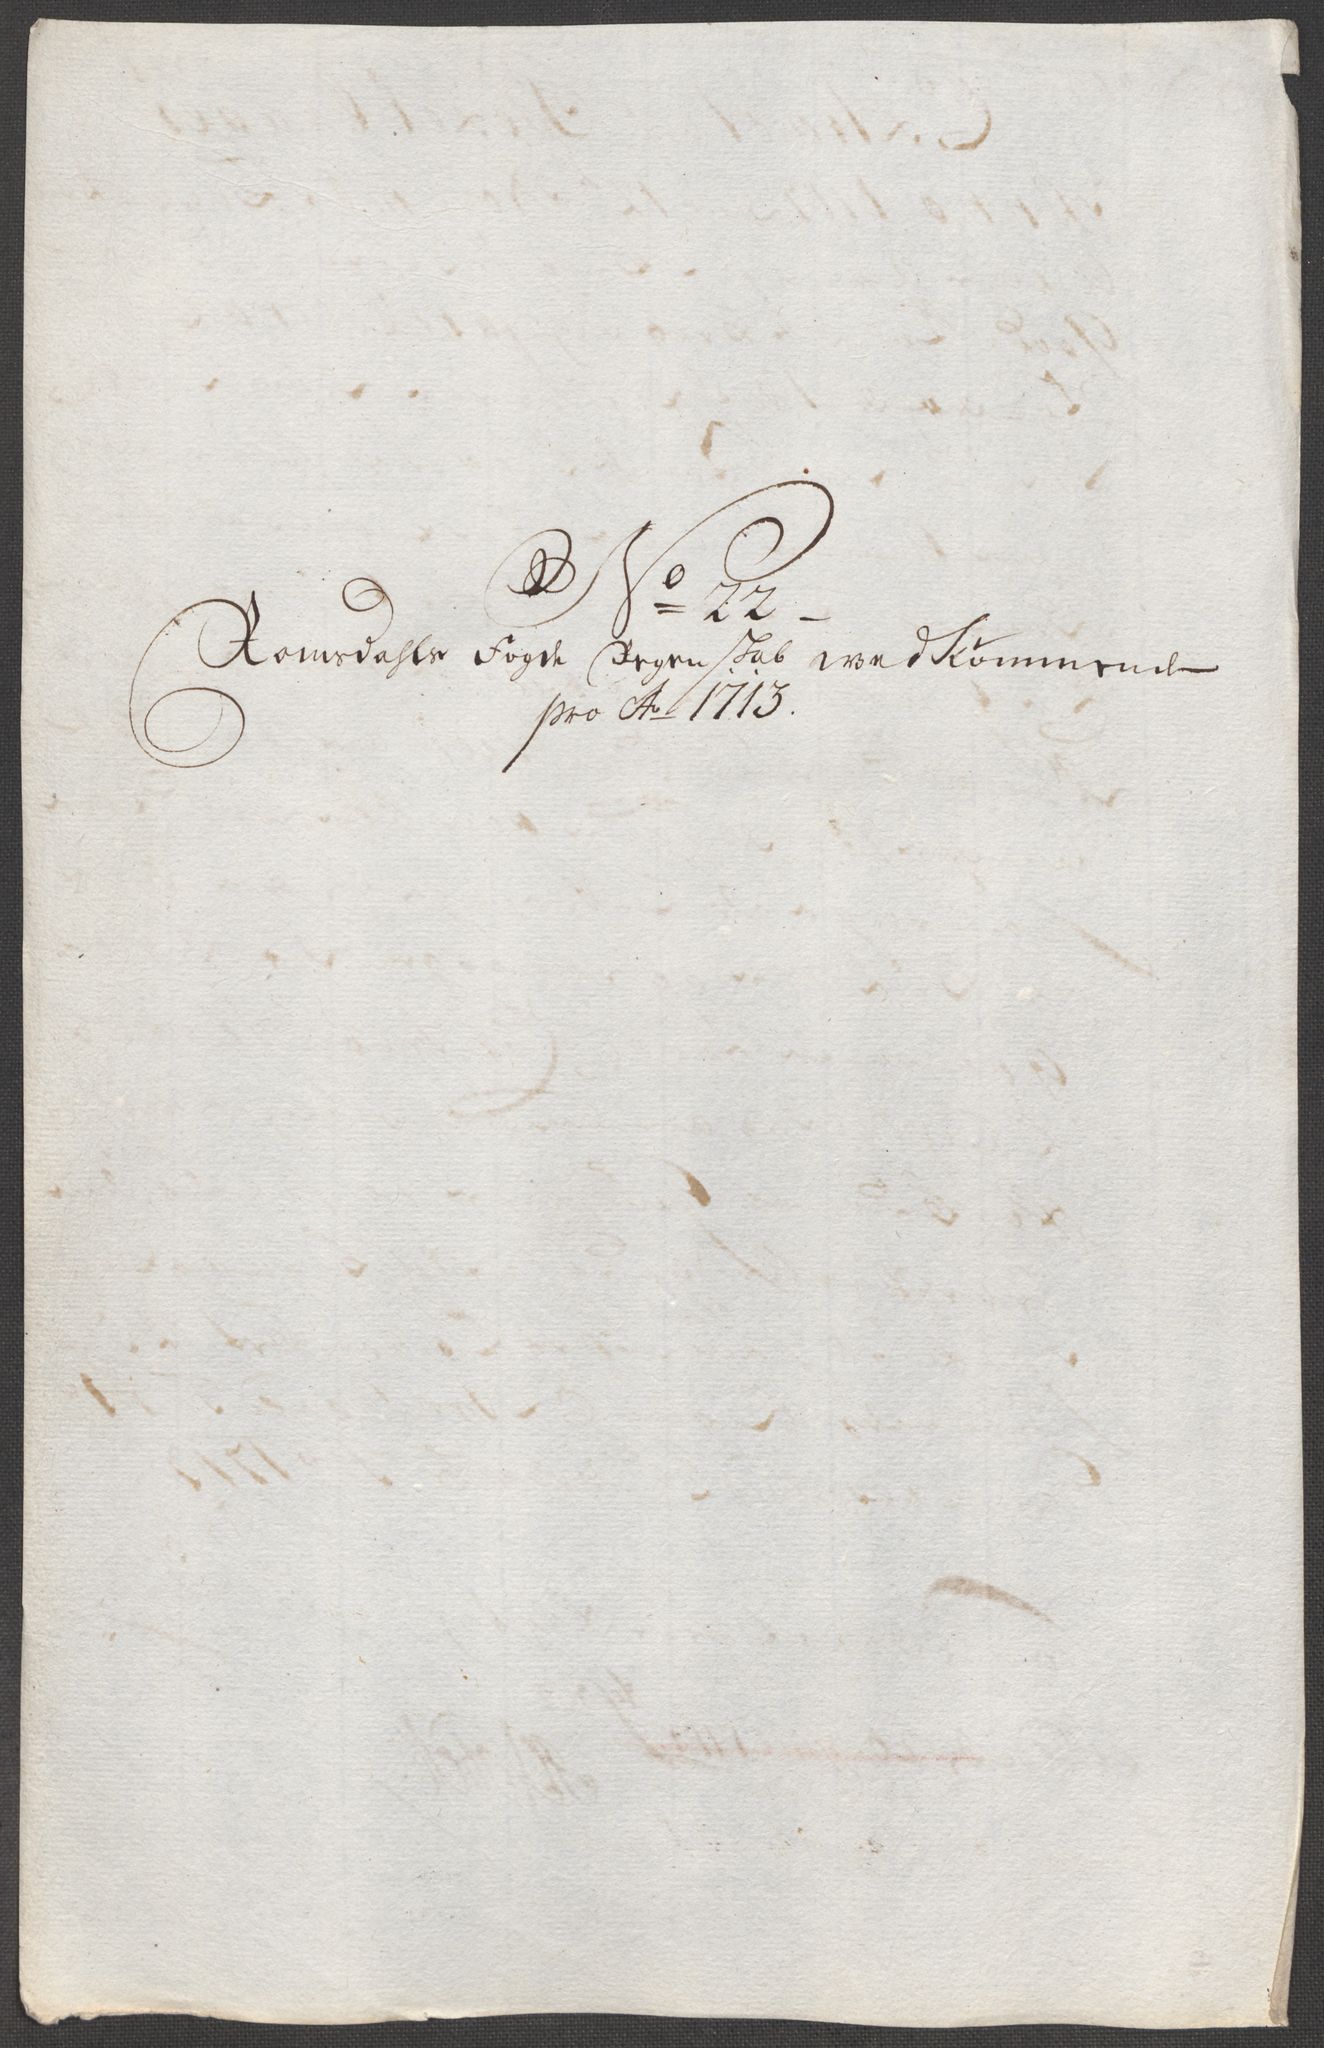 No 22
Romsdahls Fogde Regenskab wedkommende
pro Ao 1713.